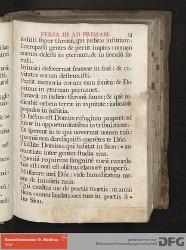 FERIA III AD PRIMAM. 13
iudicii super thronū, qui iudicas iustitiam.
Increpasti gentes & periit impius: nomen
eorum delesti in eternum, & in seculū se
culi.
Inimici defecerunt framee in finē: & ci
uitates eorum destruxisti.
Periit memoria eorum cum sonitu: & Do
minus in eternum permanet.
Parauit in iudicio thronū suum: & ipse iu
dicabit orbem terre in equitate: iudicabit
populos in iustitia.
Et factus est Dominus refugium pauperi: ad
iutor in opportunitatibus, in tribulatione.
Et sperent in te qui nouerunt nomen tuū:
quoniam non dereliquisti querentes te Dñe.
Psallite Domino, qui habitat in Sion: an
nuntiate inter gentes studia eius.
Quoniam requirens sanguinē eorū recorda
tus est: non est oblitus clamorē pauperū.
Miserere mei Dñe: vide humilitatem me
am de inimicis meis.
Qui exaltas me de portis mortis: ut annū
tiem omnes laudationes tuas in portis fi
lie Sion.
DFG